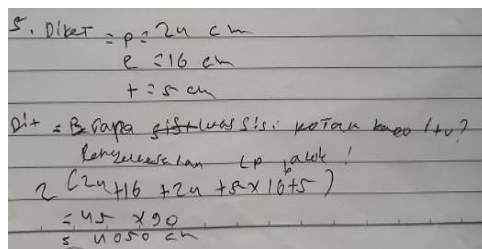 5. Diket = p = 24 cm
l = 16 cm
t = 5 cm
Dit = Brapa luas sisi kotak kado itu?
Penyelesaian Lp balok!
2 (24+16 + 24 + 5 × 16+5)
= 45 × 90
= 4050 cm